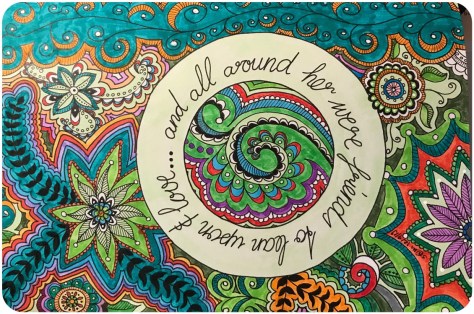 and all around her were friends to lean upon & love....